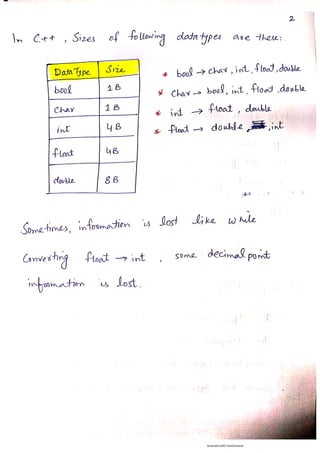 2
In C++, Sizes of following datatypes are these:
Data Type Size
bool 1 B
char 1 B
int 4 B
float 4B
double 8 B
* bool → char, int, float, double
* char → bool, int, float, double
* int → float, double
* float → double, int
Sometimes, information is lost like while
Converting float → int, some decimal point
information is lost.
Scanned with CamScanner